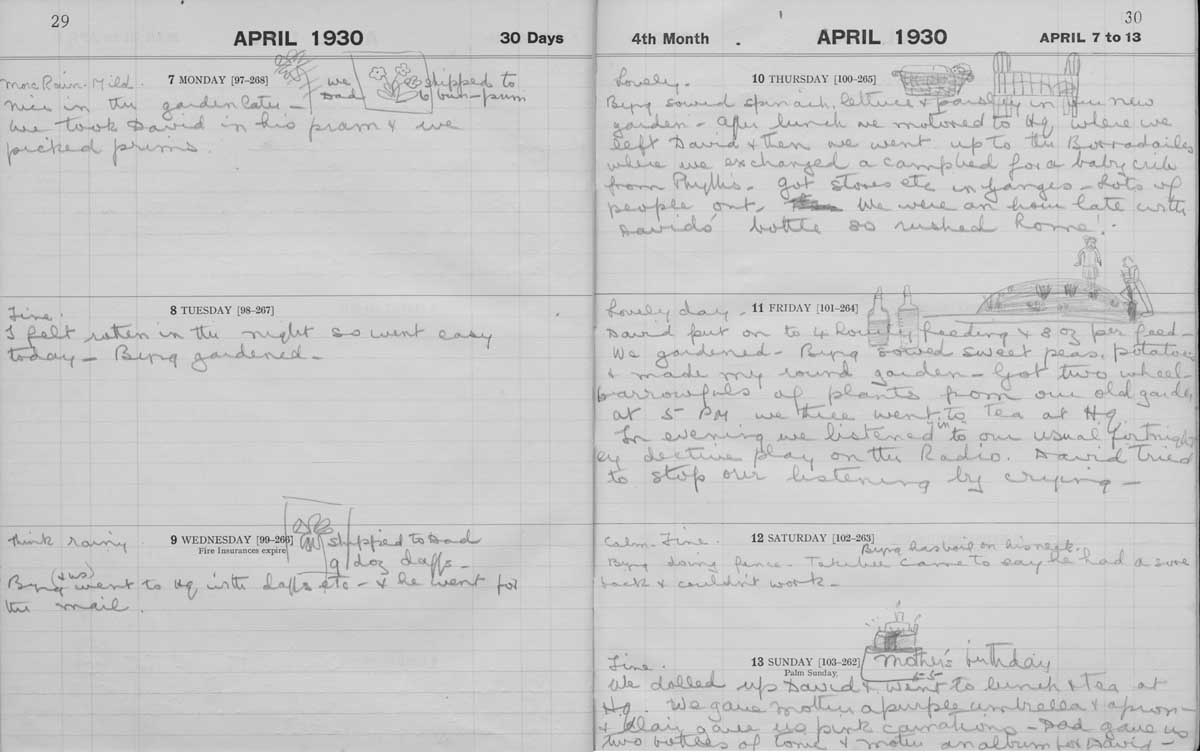 29
APRIL 1930
30 Days
7 MONDAY [97-268]
More Rain. Mild.
we shipped to
Dad 6 bun-prim
nice in the garden later -
We took David in his pram & we
picked prims.
8 TUESDAY [98-267]
Fine.
I felt rotten in the night so went easy
today - Byng gardened -
9 WEDNESDAY [99-266]
Fire Insurances expire
think rainy
shipped to Dad
9 doz daffs -
(& us)
Byng went to Hq with daffs etc - & he went for
the mail.
30
4th Month
APRIL 1930
APRIL 7 to 13
10 THURSDAY [100-265]
Lovely.
Byng sowed spinach, lettuce & parsley in new
garden - After lunch we motored to Hq where we
left David & then we went up to the Borradailes
where we exchanged a campbed for a baby crib
from Phyllis. Got stores etc in Ganges - Lots of
people out. We were an hour late with
Davids' bottle so rushed home!
11 FRIDAY [101-264]
Lovely day -
David put on to 4 hour feeding & 8 oz per feed -
We gardened - Byng sowed sweet peas, potatoes
& made my round garden - Got two wheel-
barrowfuls of plants from our old garden
at 5 PM we three went to Tea at Hq
In evening we listened in to our usual fortnight
ly dective play on the Radio. David tried
to stop our listening by crying -
12 SATURDAY [102-263]
Calm - Fine.
Byng has boil on his neck.
Byng doing fence - came to say he had a sore
back & couldn't work -
13 SUNDAY [103-262]
Palm Sunday
Fine.
Mother's birthday
55
We dolled up David & went to lunch & tea at
Hq. We gave mother a purple umbrella & apron -
& gave us pink carnations - Dad gave us
two bottles of tonic & mother an album for David -